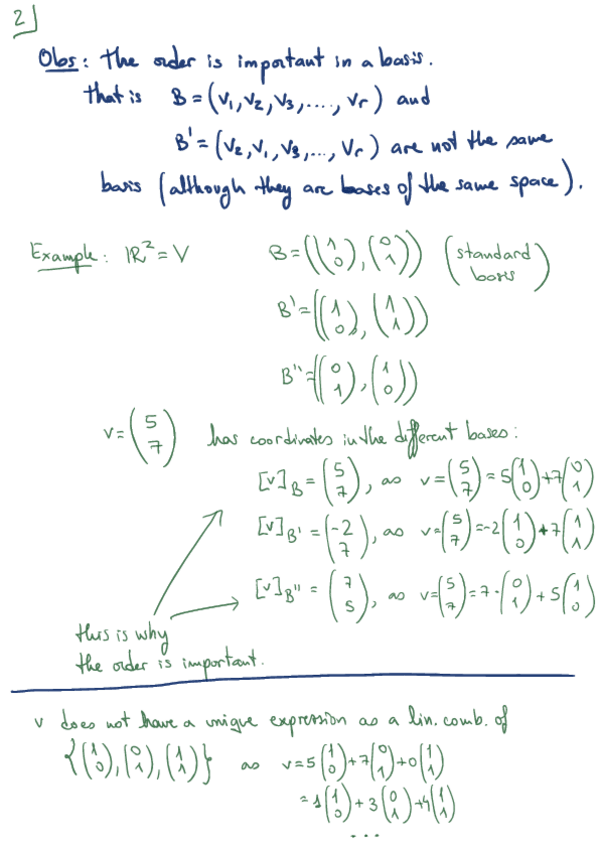 2
Obs: the order is important in a basis.
that is B = (v₁, v₂, v₃, ...., vᵣ) and
B' = (v₂, v₁, v₃, ..., vᵣ) are not the same
basis (although they are bases of the same space).
Example: ℝ² = V B = ((1 0), (0 1)) (standard basis)
B' = ((1 0), (1 1))
B'' = ((0 1), (1 0))
v = (5 7) has coordinates in the different bases:
[v]_B = (5 7), as v = (5 7) = 5(1 0) + 7(0 1)
[v]_B' = (-2 7), as v = (5 7) = -2(1 0) + 7(1 1)
[v]_B'' = (7 5), as v = (5 7) = 7·(0 1) + 5(1 0)
this is why
the order is important.
v does not have a unique expression as a lin. comb. of
{(1 0), (0 1), (1 1)} as v = 5(1 0) + 7(0 1) + 0(1 1)
= 1(1 0) + 3(0 1) + 4(1 1)
...